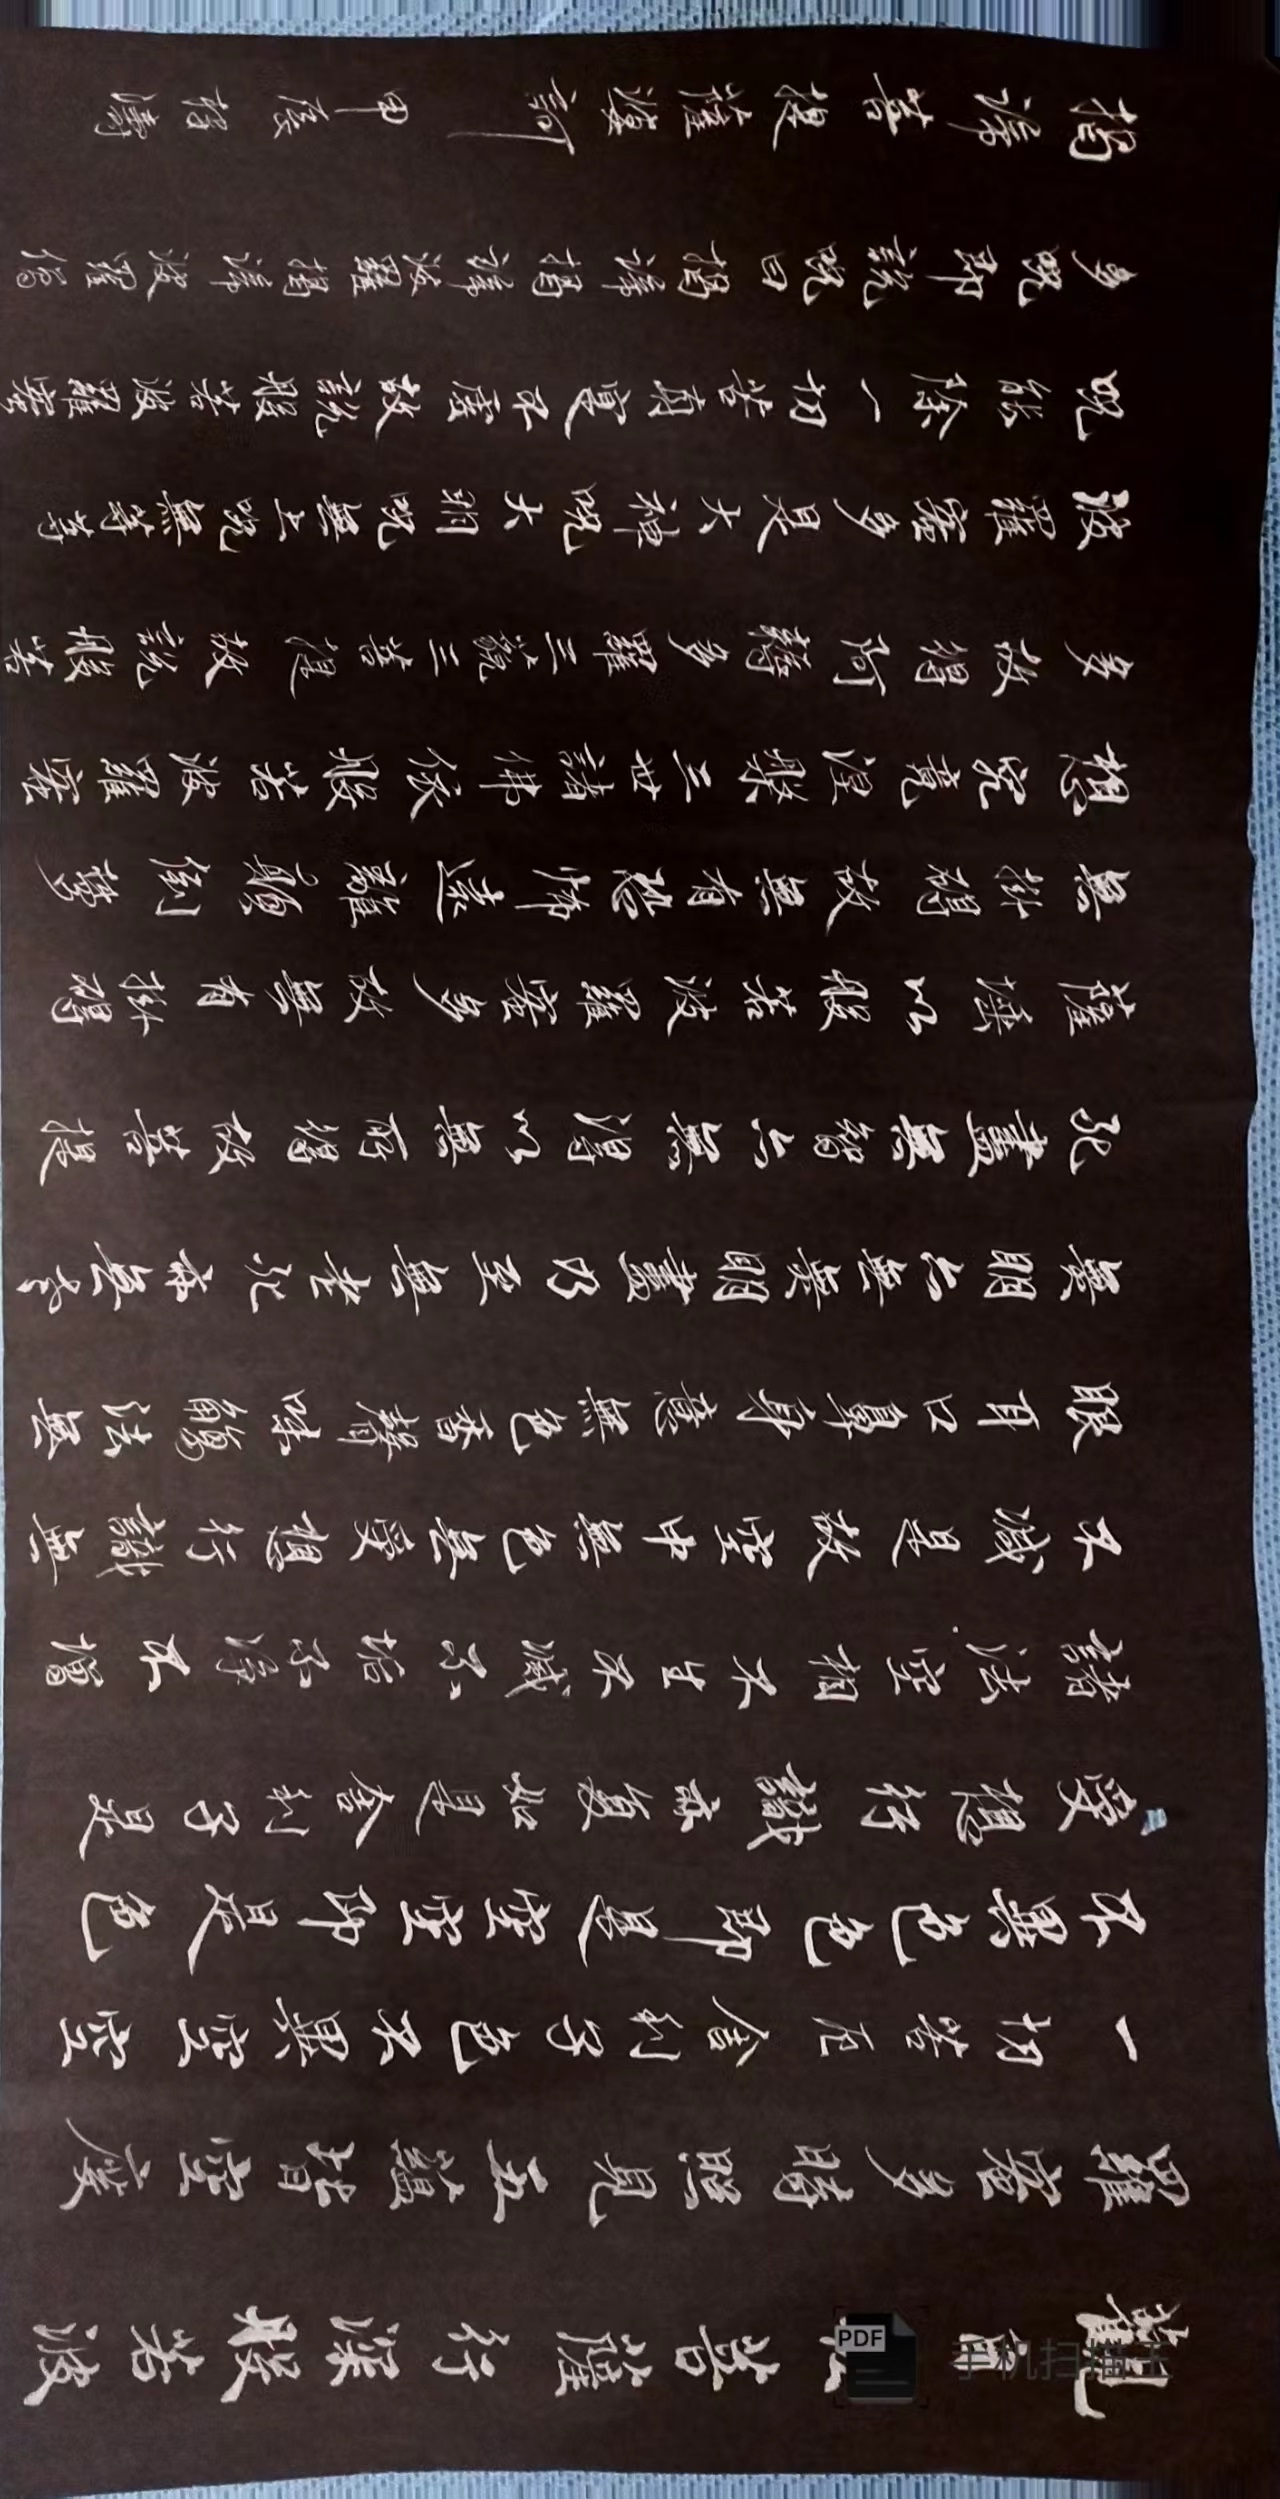 觀自在菩薩行深般若波
羅蜜多時照見五蘊皆空度
一切苦厄舍利子色不異空空
不異色色即是空空即是色
受想行識亦复如是舍利子是
諸法空相不生不滅不垢不净不增
不减是故空中無色無受想行識無
眼耳口鼻身意無色香聲味觸法無
無明亦無無明盡乃至無老死亦無老
死盡無智亦無得以無所得故菩提
薩埵以般若波羅蜜多故無有掛碍
無掛碍故無有恐怖遠離顛倒夢
想究竟涅槃三世諸佛依般若波羅蜜
多故得阿耨多羅三藐三菩提故說般若
波羅蜜多是大神咒大明咒無上咒無等等
咒能除一切苦真寔不虛故說般若波羅蜜
多咒即說咒曰揭諦揭諦波羅揭諦波羅僧
揭諦菩提薩婆訶 甲辰 濤
PDF